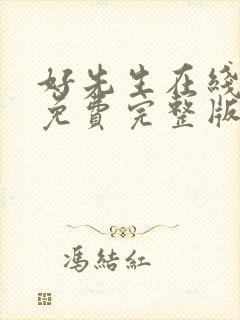 好先生在綫
免費完整版
馮結紅